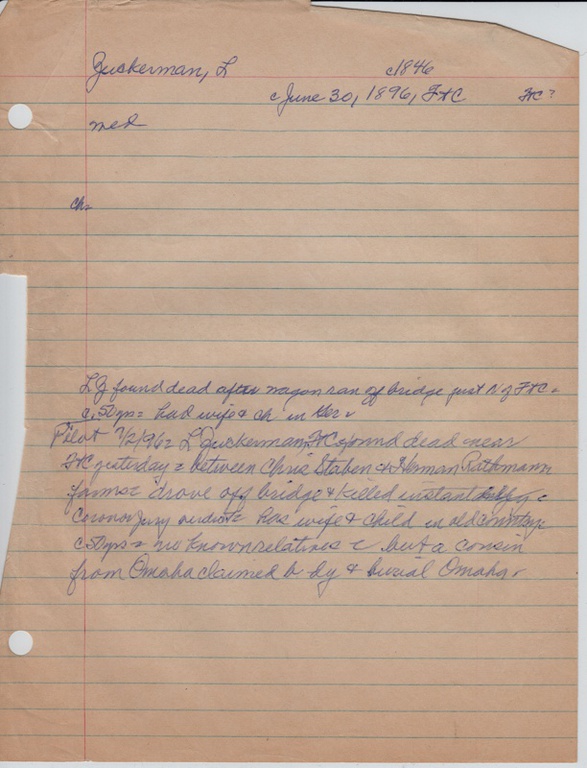 Zuckerman, L c1846
c June 30, 1896, FtC FtC?
med
ch-
LZ found dead after wagon ran off bridge just N of FtC =
c 50 yrs = had wife & ch in Ger
Pilot 7/2/96 = L Zuckerman, FtC found dead near
FtC yesterday = between Chris Staben & Herman Rathmann
farms = drove off bridge & killed instantly =
Coroner Jury = has wife & child in old country =
c 50 yrs = no known relatives but a cousin
from Omaha claimed body & burial Omaha